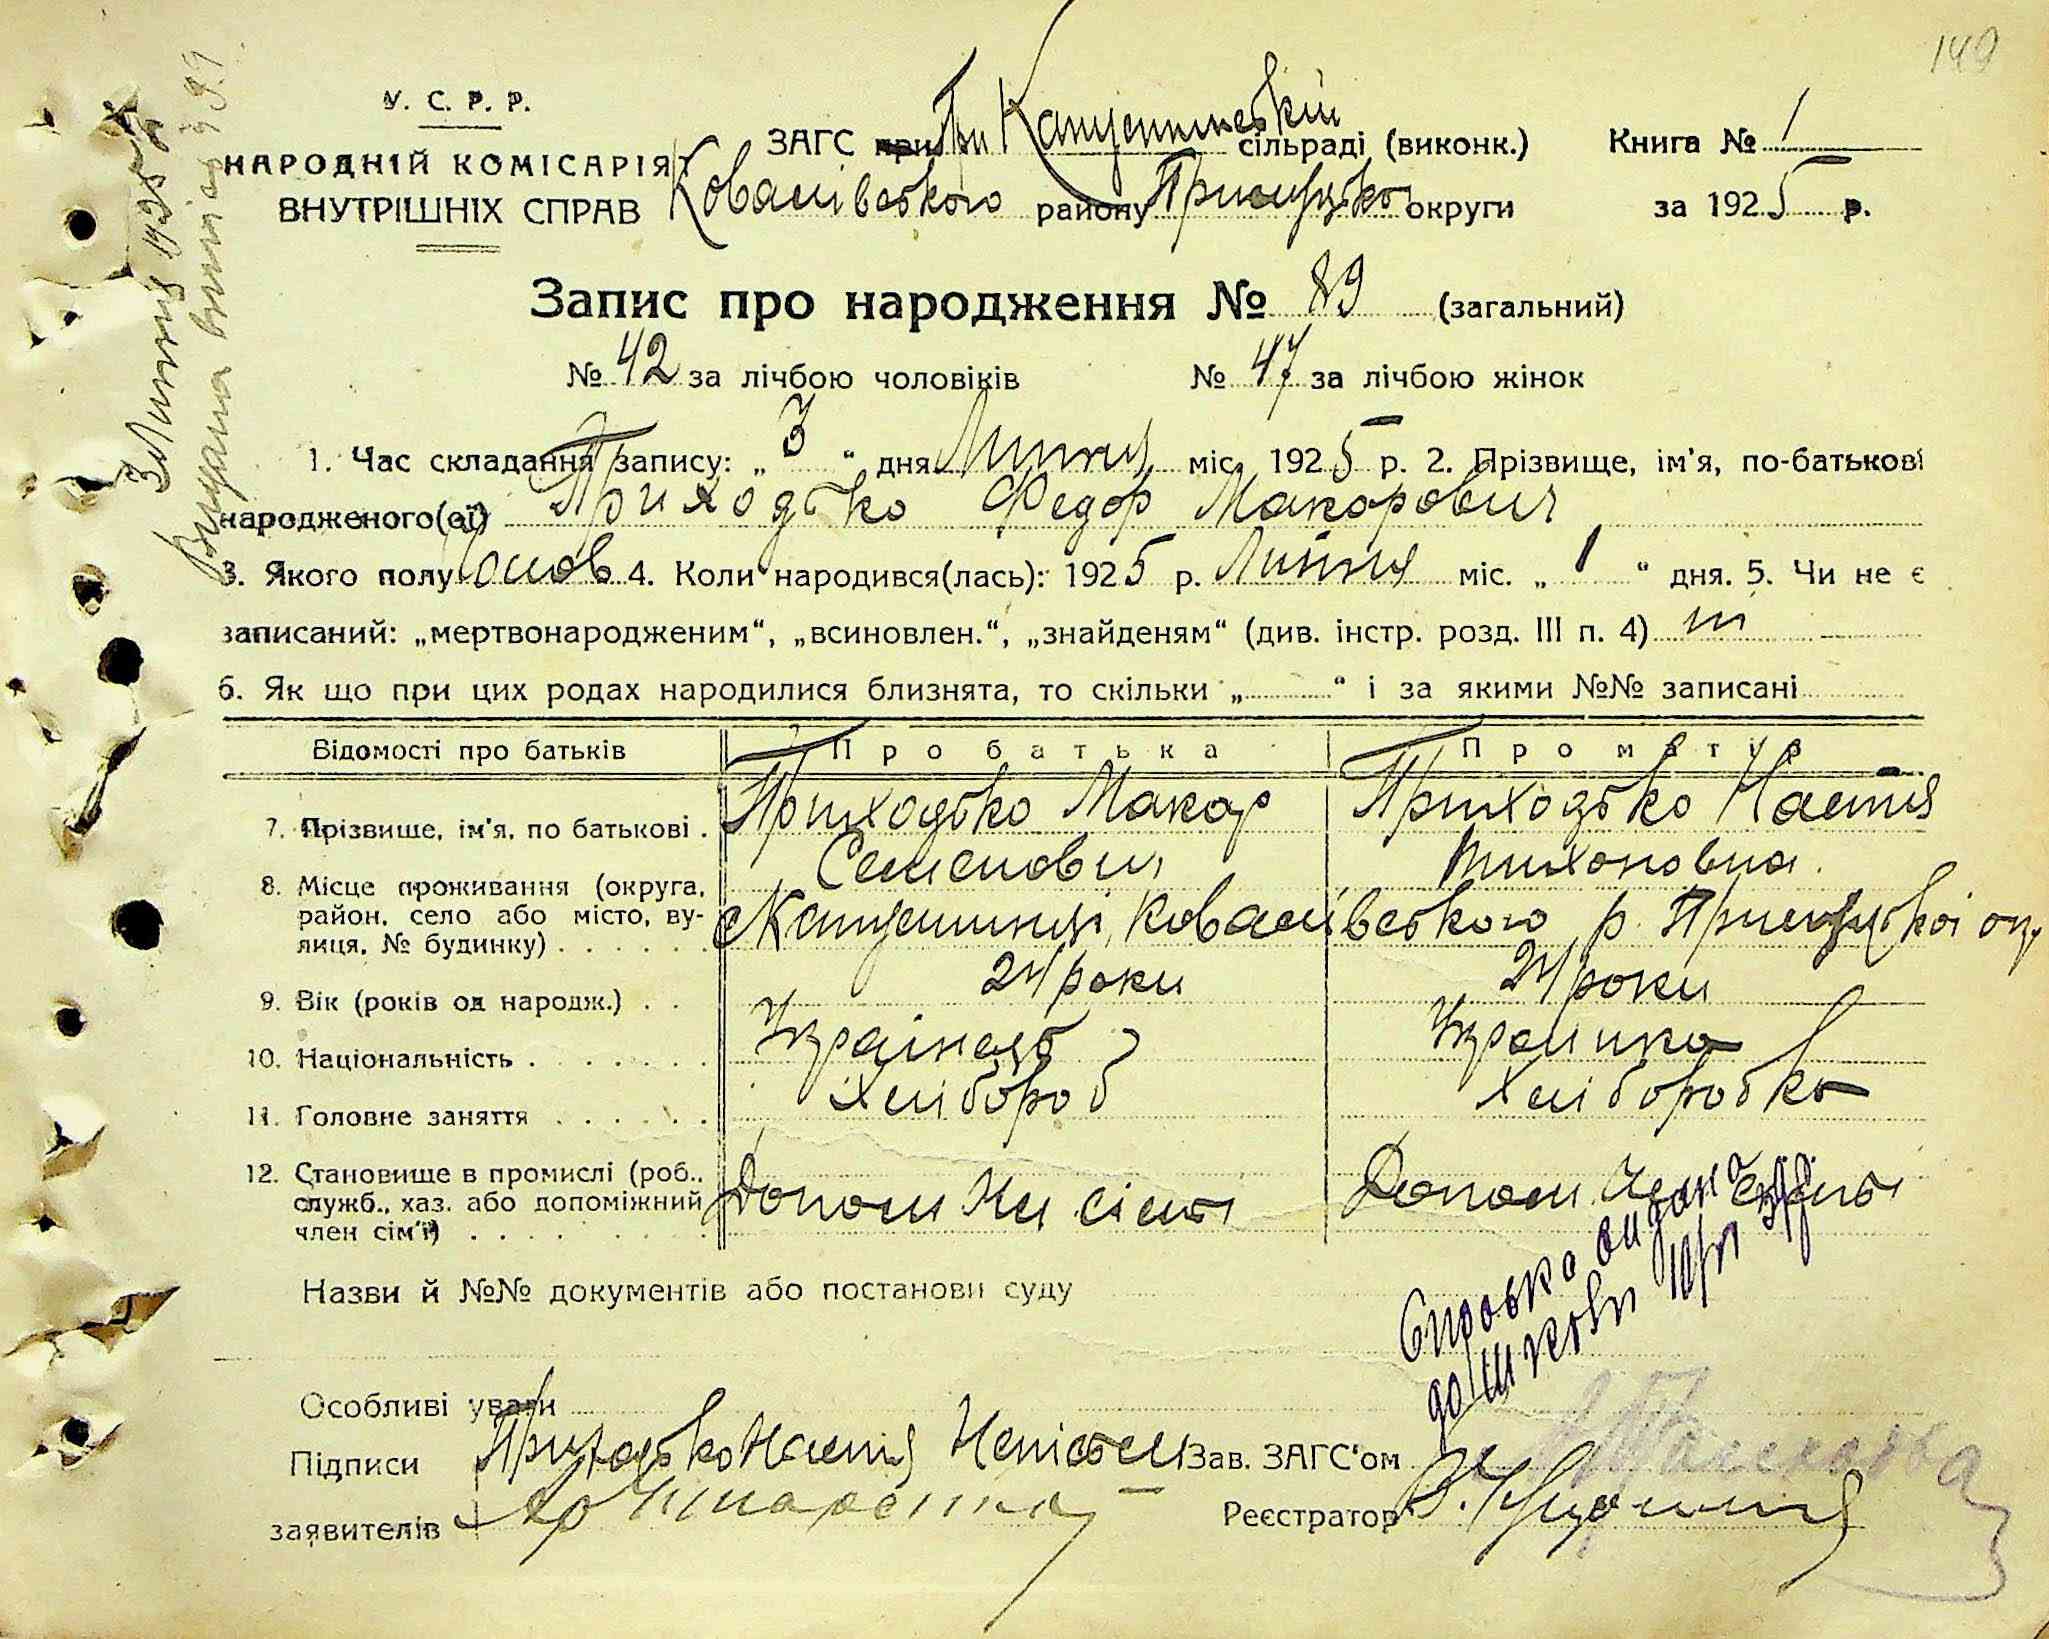 149
У. С. Р. Р.
НАРОДНІЙ КОМІСАРІЯТ
ВНУТРІШНІХ СПРАВ
ЗАГС при При Капустинській сільраді (виконк.)
Ковалівського району Прилуцької округи
Книга № 1
за 1925 р.
Запис про народження № 89 (загальний)
№ 42 за лічбою чоловіків № 47 за лічбою жінок
1. Час складання запису: „ 3 “ дня Липня міс. 1925 р. 2. Прізвище, ім'я, по-батькові
народженого(ої) Приходько Федор Макарович
3. Якого полу чолов 4. Коли народився(лась): 1925 р. Липня міс. „ 1 “ дня. 5. Чи не є
записаний: „мертвонародженим“, „всиновлен.“, „знайденям“ (див. інстр. розд. III п. 4) ні
6. Як що при цих родах народилися близнята, то скільки „ “ і за якими №№ записані
Відомості про батьків Про батька Про матір
7. Прізвище, ім'я, по батькові . Приходько Макар Приходько Настя
Семенович Тихоновна.
8. Місце проживання (округа,
район, село або місто, ву-
лиця, № будинку) . . . . . . Капустинці, Ковалівського р. Прилуцької ок,
9. Вік (років од народж.) . . 24 роки 24 роки
10. Національність . . . . . . . Українець Українка
11. Головне заняття . . . . . . Хлібороб Хлібороб ка
12. Становище в промислі (роб.,
служб., хаз. або допоміжний
член сім'ї) . . . . Допом чл сім'ї Допом член сім'ї
Справка видана
до школи
Назви й №№ документів або постанови суду
Особливі уваги
Підписи Приходько Настя Неписьм Зав. ЗАГС'ом
заявителів Реєстратор
3 Липня 1925 р.
Видана виписка